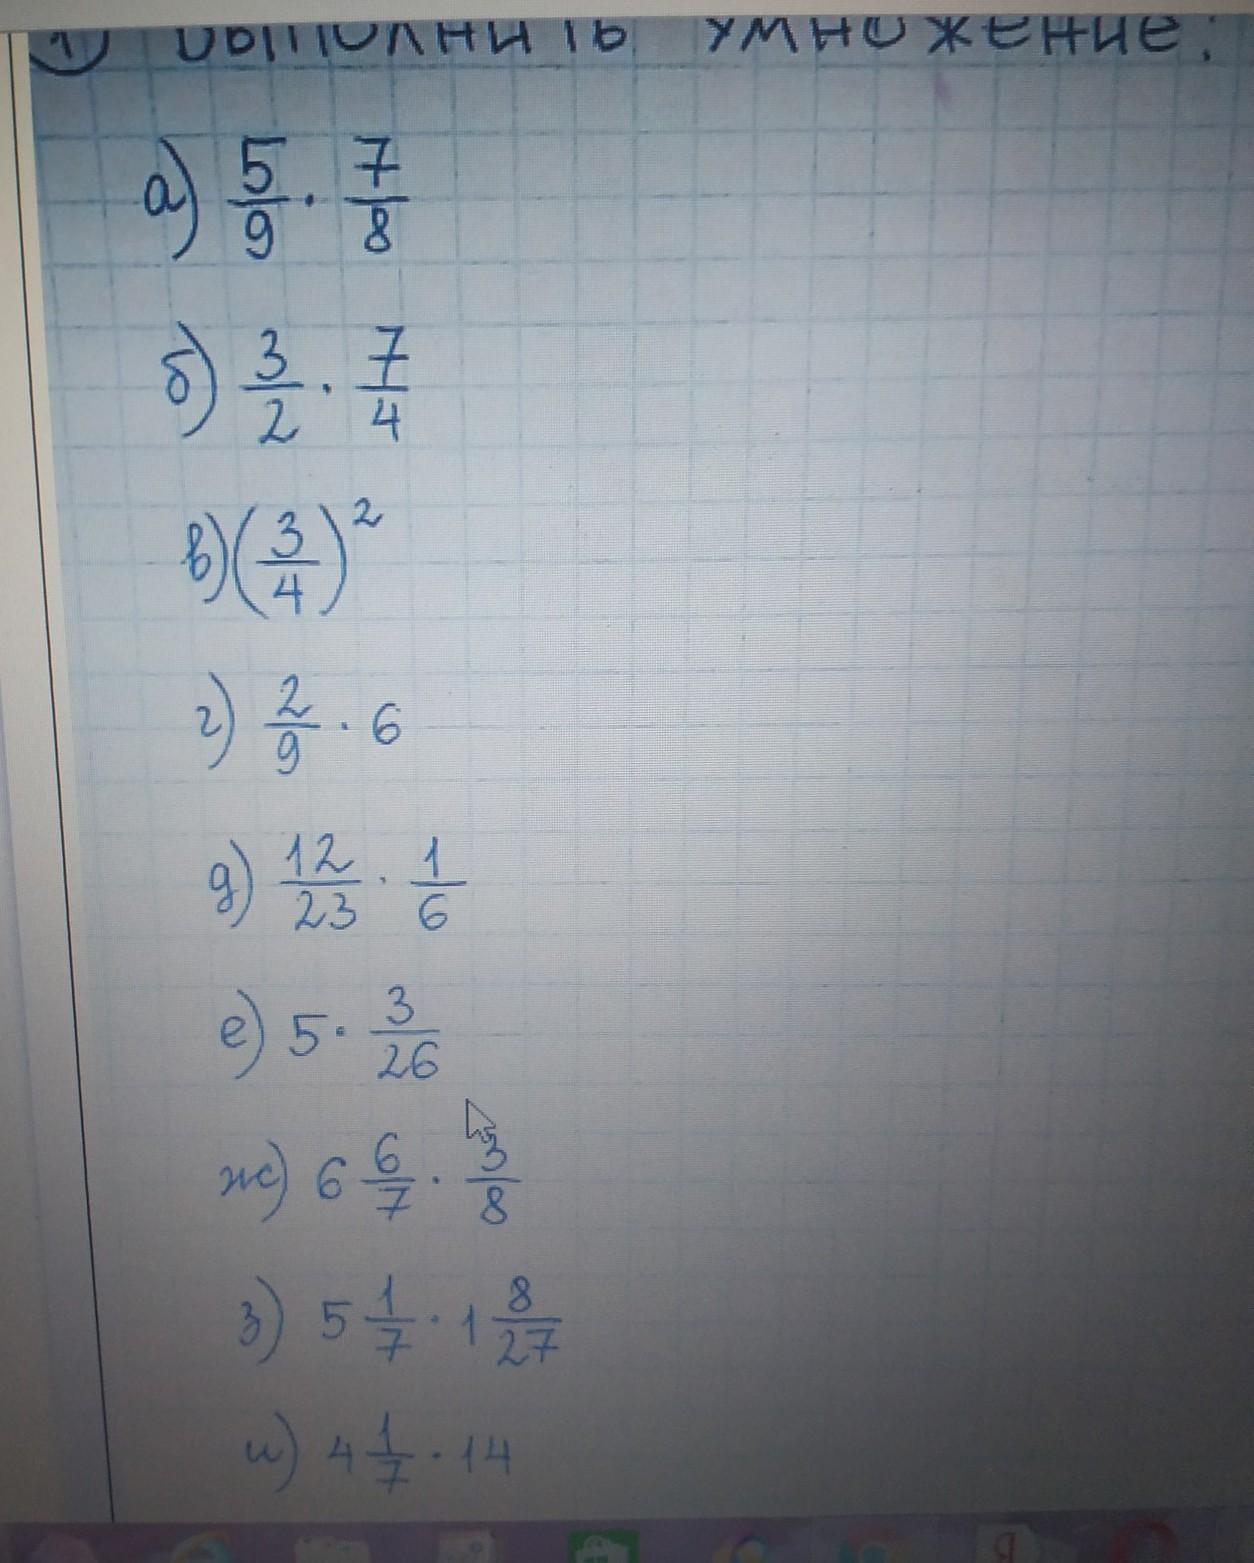 1) Выполнить умножение:
а) 5/9 · 7/8
б) 3/2 · 7/4
в) (3/4)²
г) 2/9 · 6
д) 12/23 · 1/6
е) 5 · 3/26
ж) 6 6/7 · 3/8
з) 5 1/7 · 1 8/27
и) 4 1/7 · 14
Я